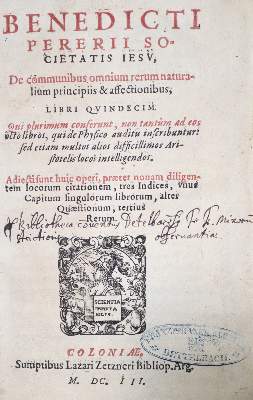 BENEDICTI
PERERII SO-
CIETATIS IESV,
De cõmunibus omnium rerum natura-
lium principiis & affectionibus,
LIBRI QVINDECIM.
Qui plurimum conferunt, non tantùm ad eos
octo libros, qui de Physico auditu inscribuntur:
sed etiam multos alios difficillimos Ari-
stotelis locos intelligendos.
Adiecti sunt huic operi, præter nouam diligen-
tem locorum citationem, tres Indices, vnus
Capitum singulorum librorum, alter
Quæstionum, tertius
Rerum.
Bibliotheca
SCIENTIA
IMMVTA
BILIS
COLONIAE,
Sumptibus Lazari Zetzneri Bibliop. Arg.
M. DC. III.